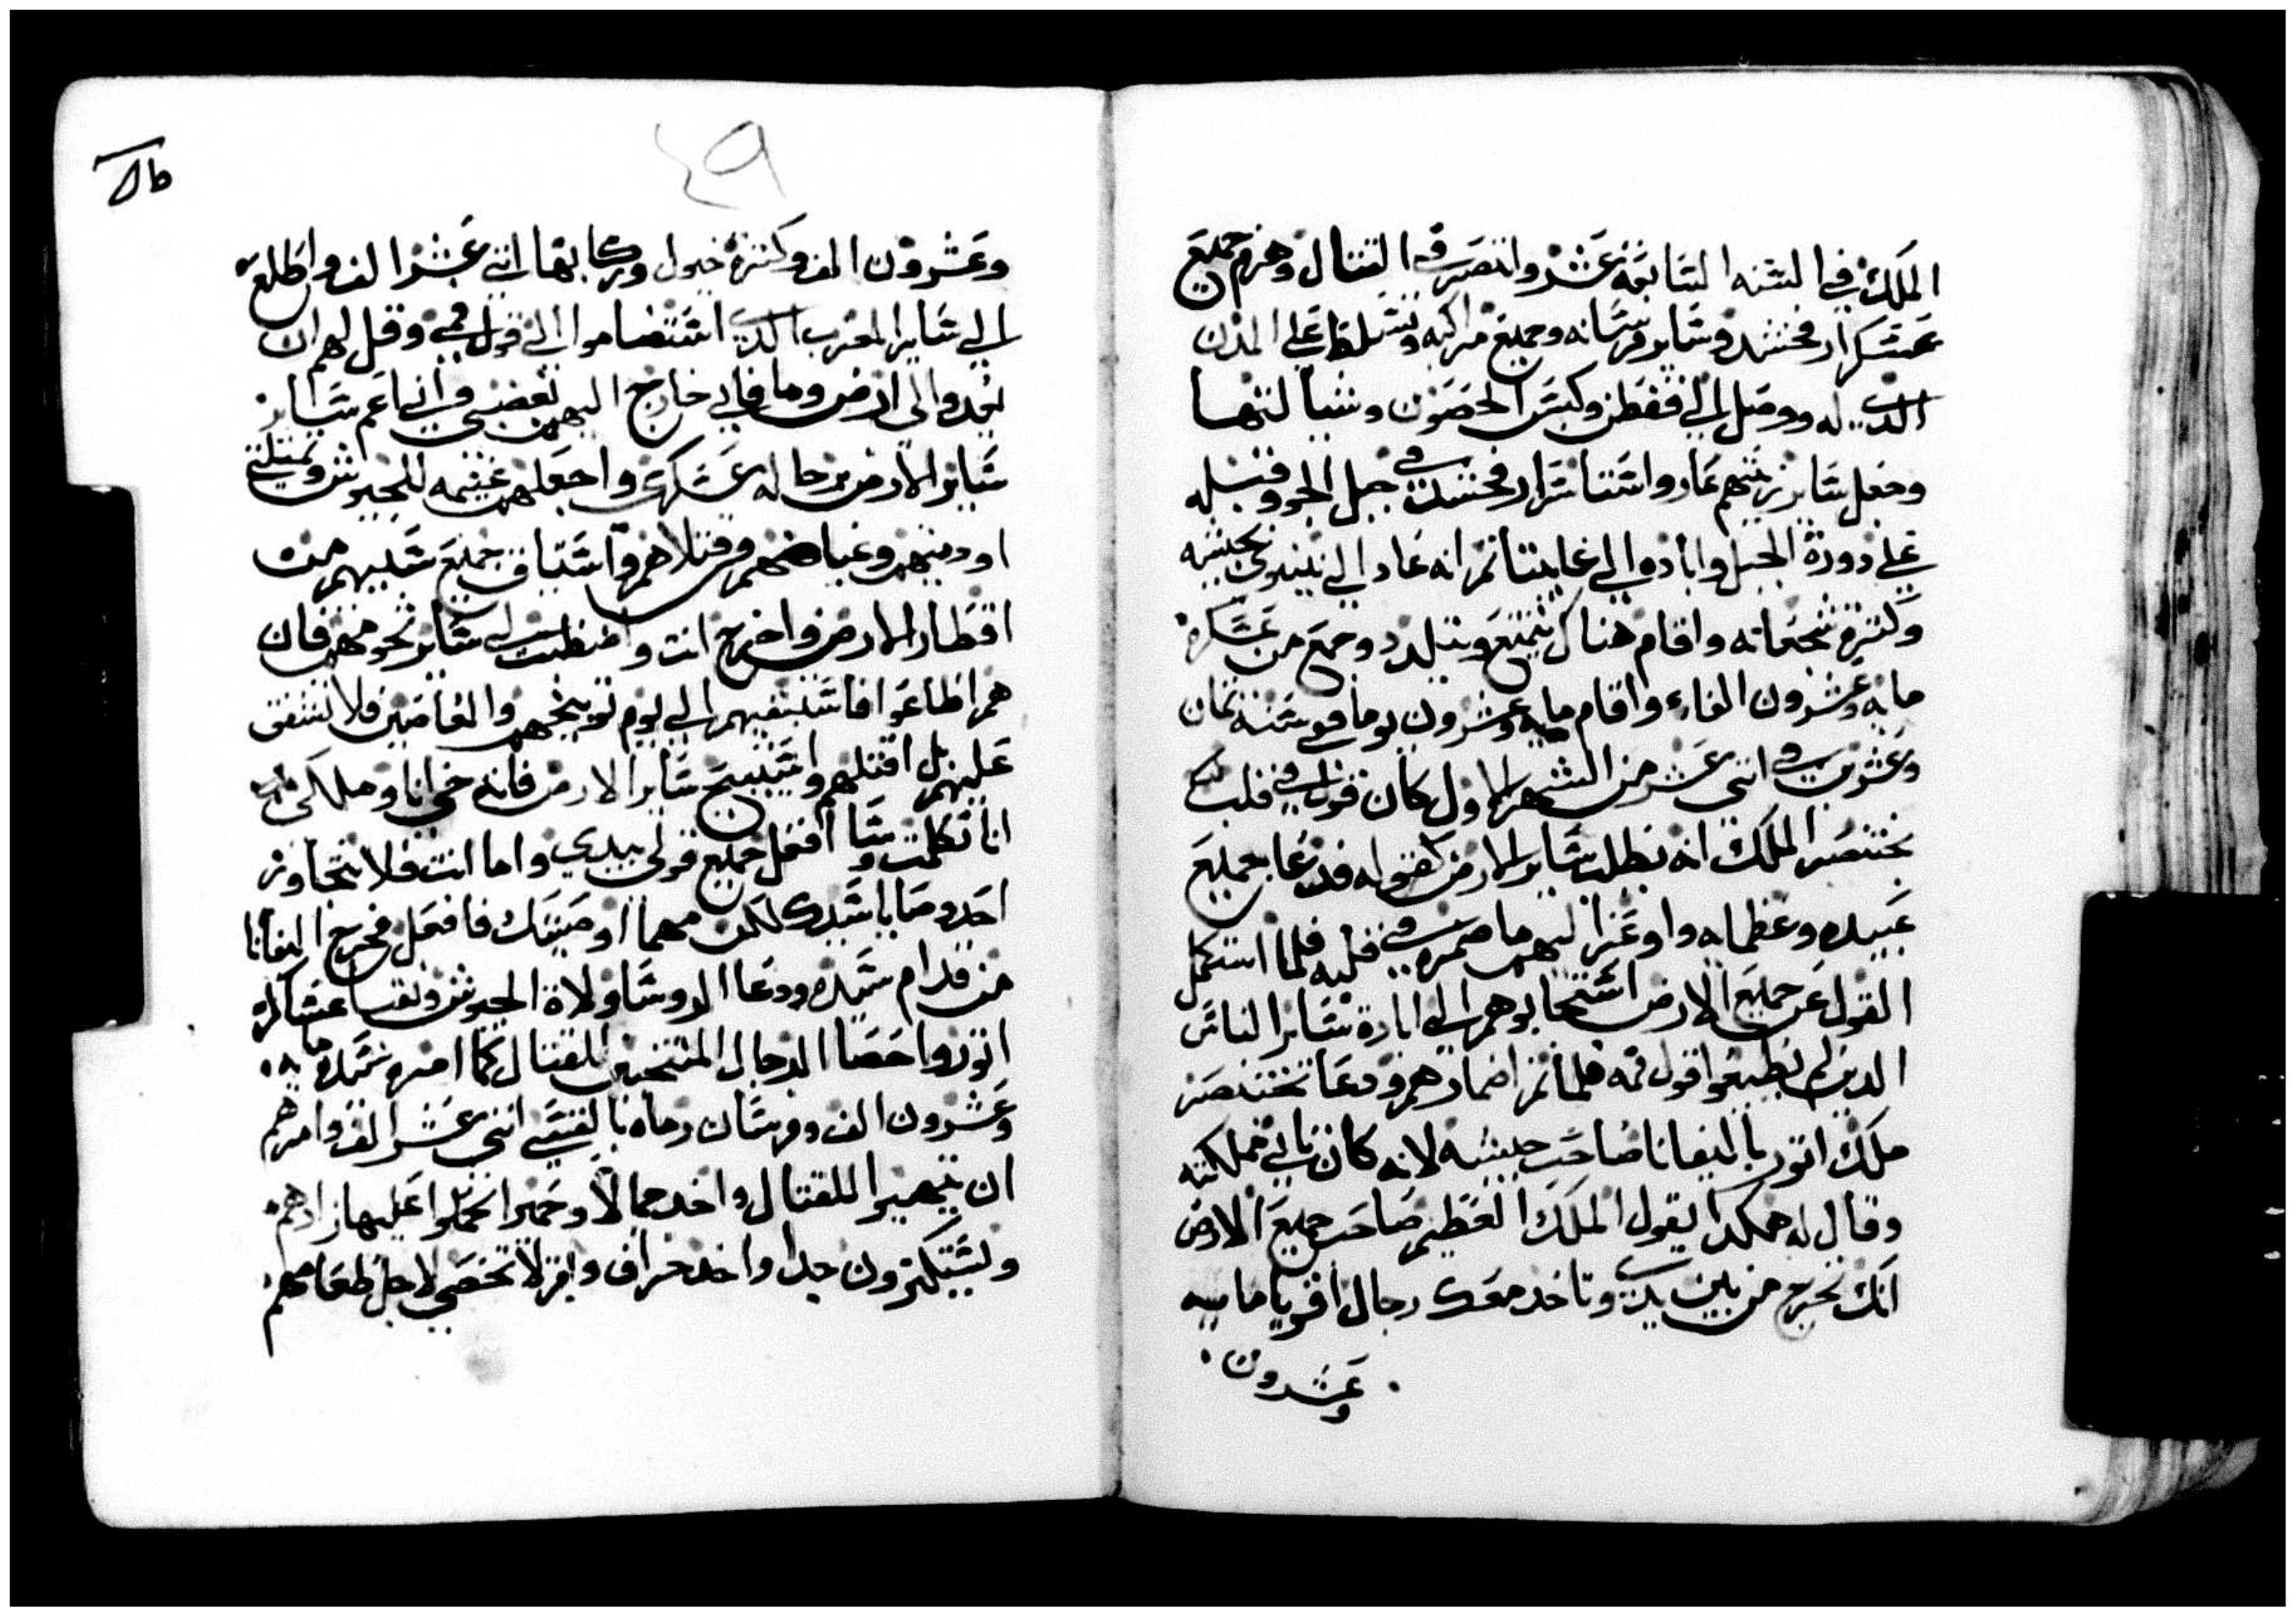 الملك في السنه السابعه عشر وانتصر في القتال وهزم جميع
عسكر ارفخشد وساير فرسانه وجميع مراكبه وتسلط على المدن
الدي له ووصل الى قفطن وكبس الحصون وسبا لنهبها
وجعل ساير زينتهم عار واستاسر ارفخشد في جبل الجو وقتله
على دورة الجبل وابادو الى غايتنا ثم انه عاد الى نينوى بجيشه
وكثرة شجعاته واقام هناك يتمتع ويتلدد وجمع من عسكره
مايه وعشرون الفا واقام مايه وعشرون يوما وفي سنه تمان
وعشرين في اتني عشر من الشهر الاول كان قول في قلب
بختنصر الملك انه يطلب ساير الارض كقوله فدعا جميع
عبيده وعظمايه واوعز اليهم ما ضمره في قلبه فلما استكمل
القول عن جميع الارض استجابوهم الى ابادة ساير الناس
الدين لم يطيعوا قول فمه فلما تم اضمارهم ودعا بختنصر
ملك اتور باليفانا صاحب جيشه لانه كان تاني مملكته
وقال له هكدا يقول الملك العظيم صاحب جميع الارض
انك تخرج من بين يدي وتاخد معك رجال اقويا مايه
وعشرون
٤٩
وعشرون الف وكثرة خيول وركابها اتني عشر الف واطلع
الى ساير المغرب الدين استضاموا الى قول فمي وقل لهم ان
يعدوا لي ارض وما فاني خارج اليهم بغضبي واني اعم ساير
ساير الارض برجاله عسكري واجعلهم غنيمه للجيوش وتمتلي
اوديتهم وغياضهم وقتلاهم واستاق جميع سبيهم من
اقطار الارض واخرج انت واضبط لي ساير تخومهم فان
هم اطاعوا فاستبقيهم الى يوم توبيخهم والعاصين فلا تشفق
عليهم بل اقتلهم واستبيح ساير الارض فاني حي انا وملكي
انا تكلمت وسا افعل جميع قولي بيدي واما انت فلا تتجاوز
احد وصايا سيدك لكن مهما اوصيتك فافعل فخرج اليفانا
من قدام سيده ودعا الروسا وولاة الجيوش ونقبا عساكر
اتور واحصا الرجال المنتخبين للقتال كما امره سيده مايه
وعشرون الف وفرسان رماه بالقسي اتني عشر الف وامرهم
ان يتهيوا للقتال واخد جمالا وحمير اتحملوا عليها زادهم
ويستكترون جدا واخد خراف وبقر لا تحصى لاجل طعامهم